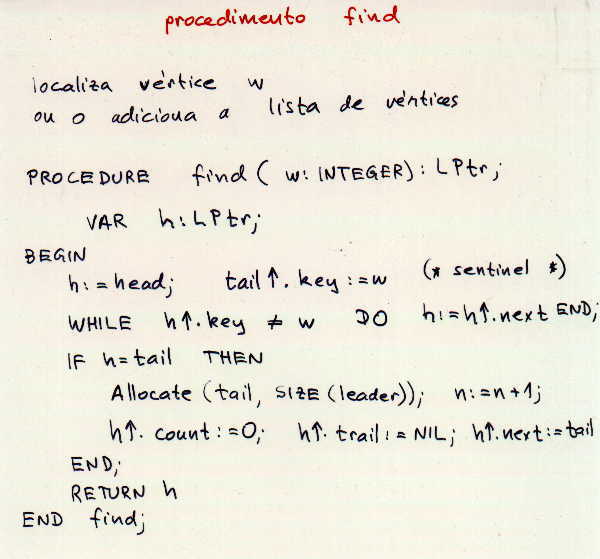 procedimento find
localiza vértice w
ou o adiciona a lista de vértices
PROCEDURE find( w: INTEGER): LPtr;
VAR h: LPtr;
BEGIN
h:=head; tail↑.key:=w (* sentinel *)
WHILE h↑.key ≠ w DO h:=h↑.next END;
IF h=tail THEN
Allocate (tail, SIZE (leader)); n:=n+1;
h↑.count:=0; h↑.trail:=NIL; h↑.next:=tail
END;
RETURN h
END find;